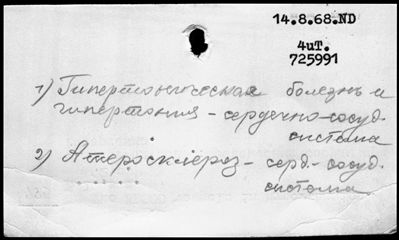 14.8.68.ND
4иT.
725991
1) Гипертоническая болезнь и
гипертония - сердечно-сосуд.
система
2) Атеросклероз - серд-сосуд.
система